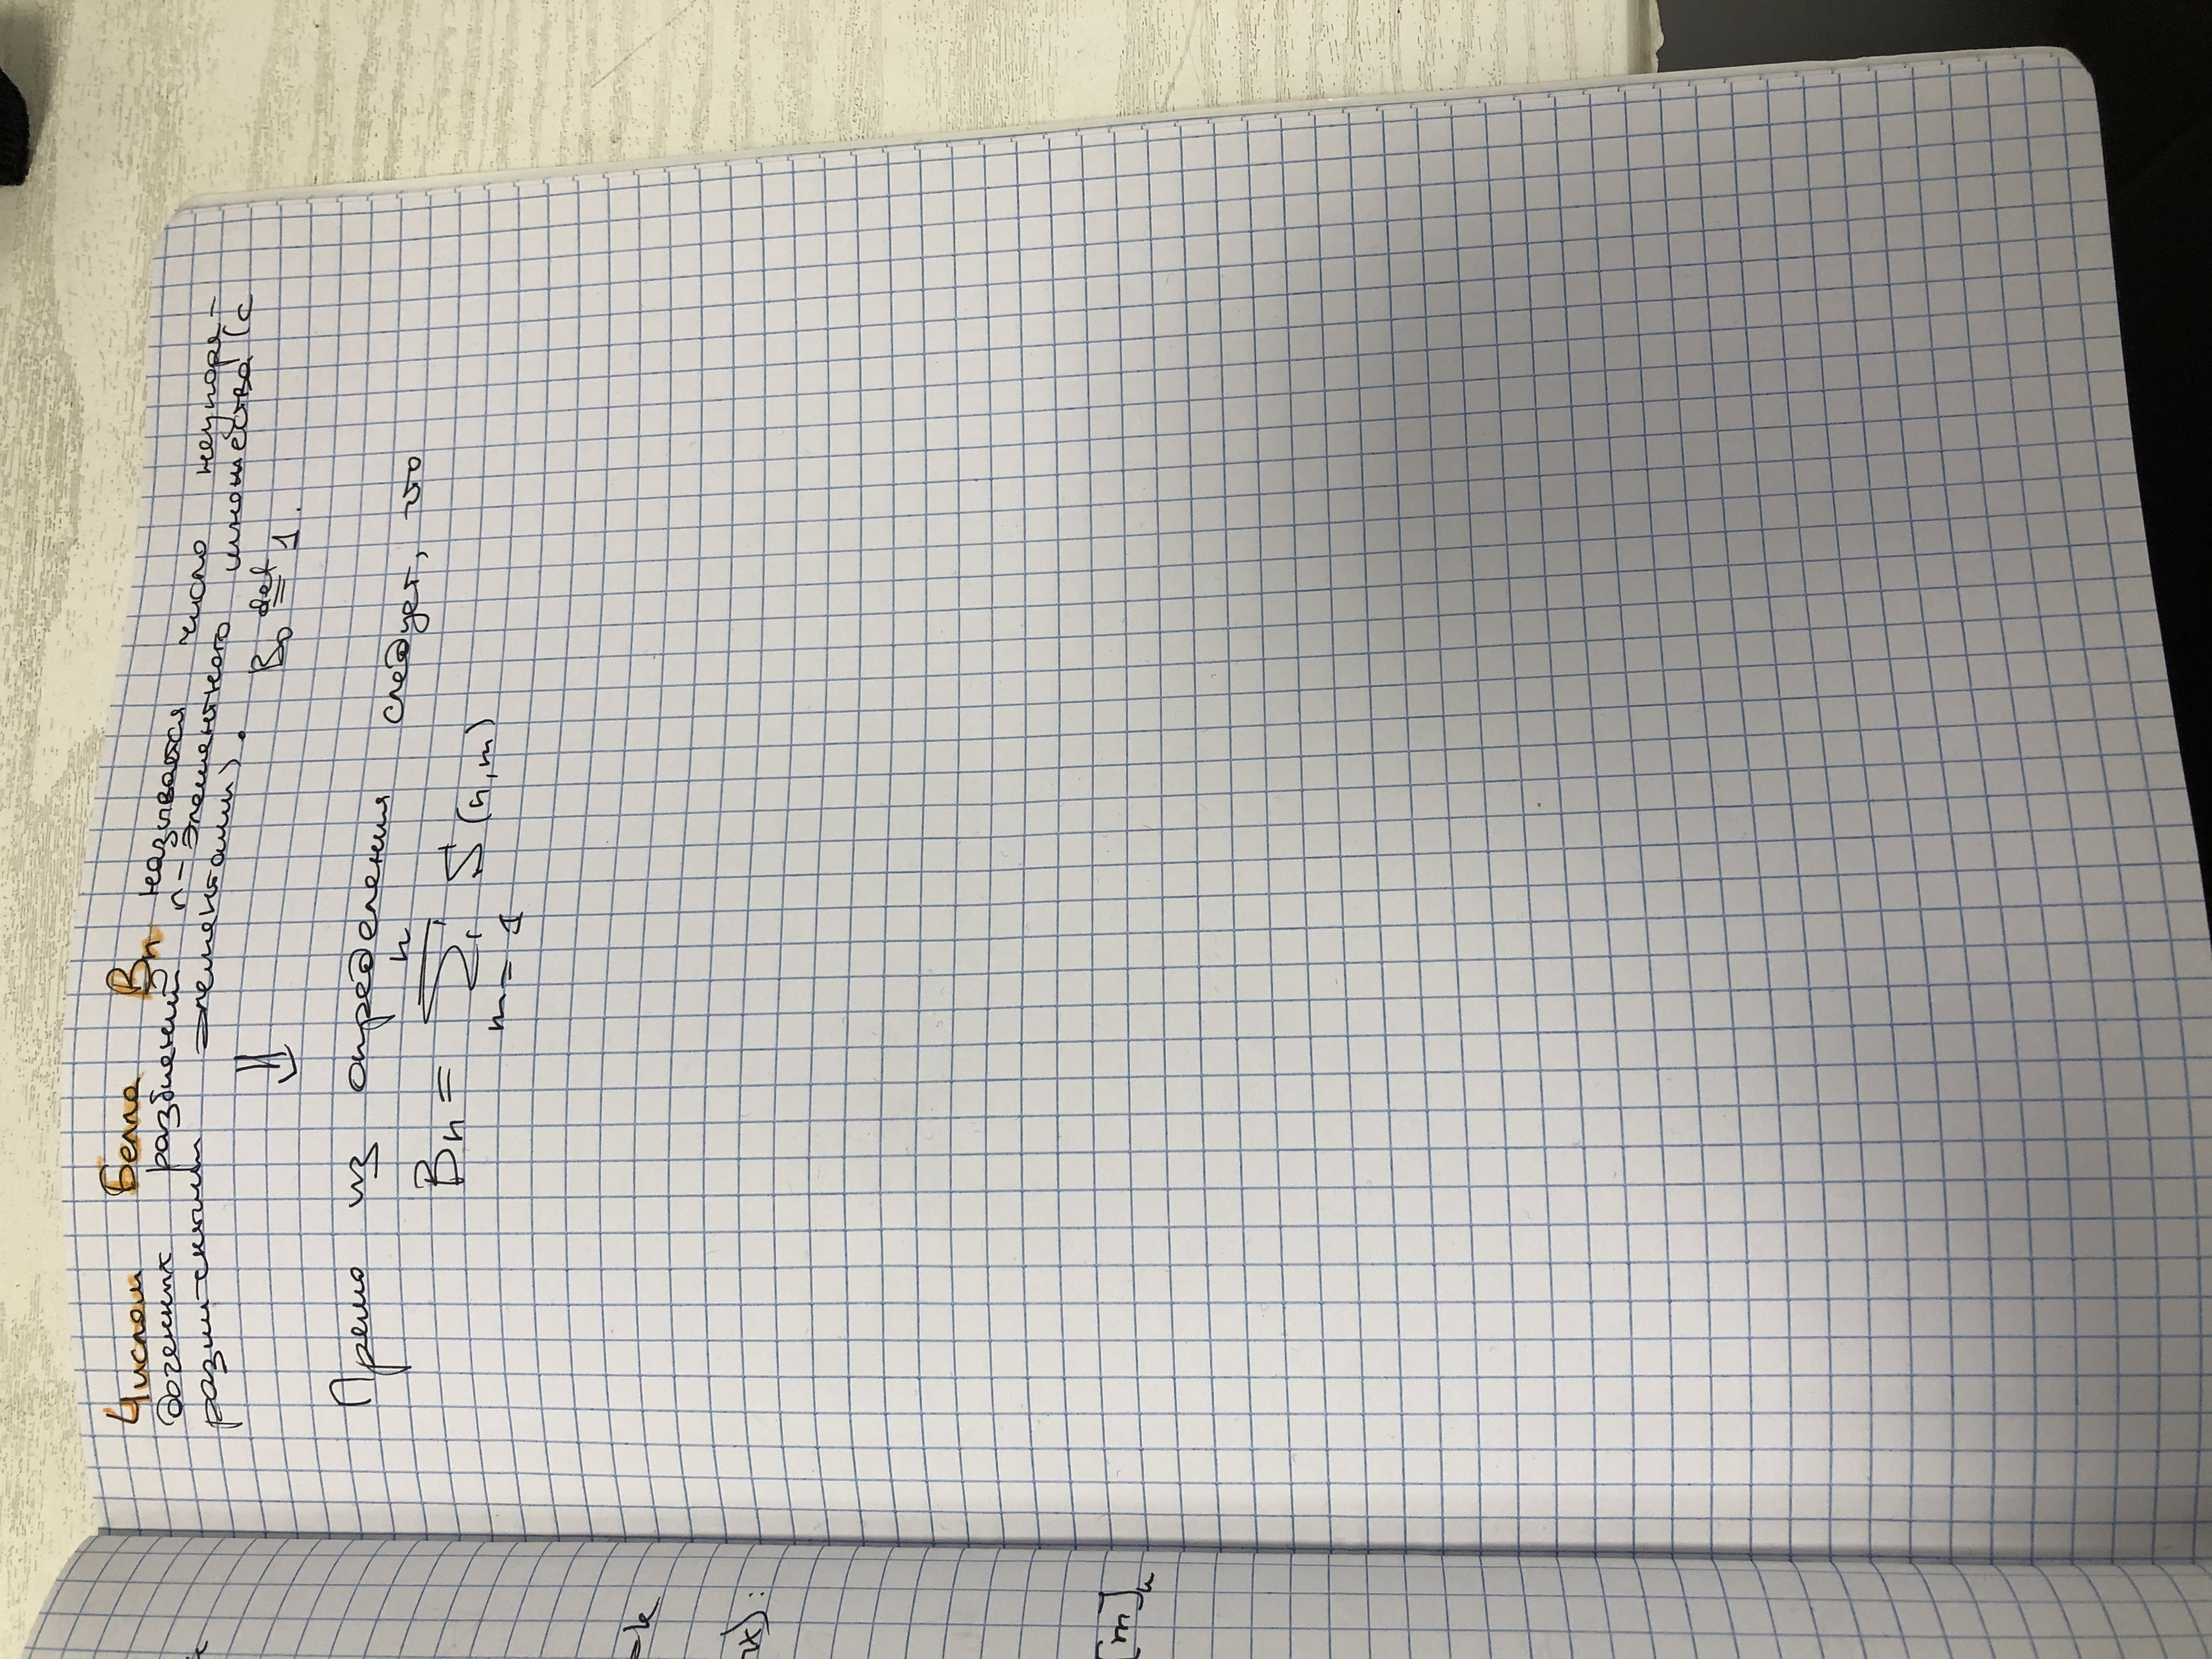 Числом Белла Bn называется число неупоря-
доченных разбиений n-элементного множества (с
различными элементами).
B₀ def= 1.
⇓
Прямо из определения следует, что
n
Bn = Σ S(n,m)
m=1
=k
х):
[m]